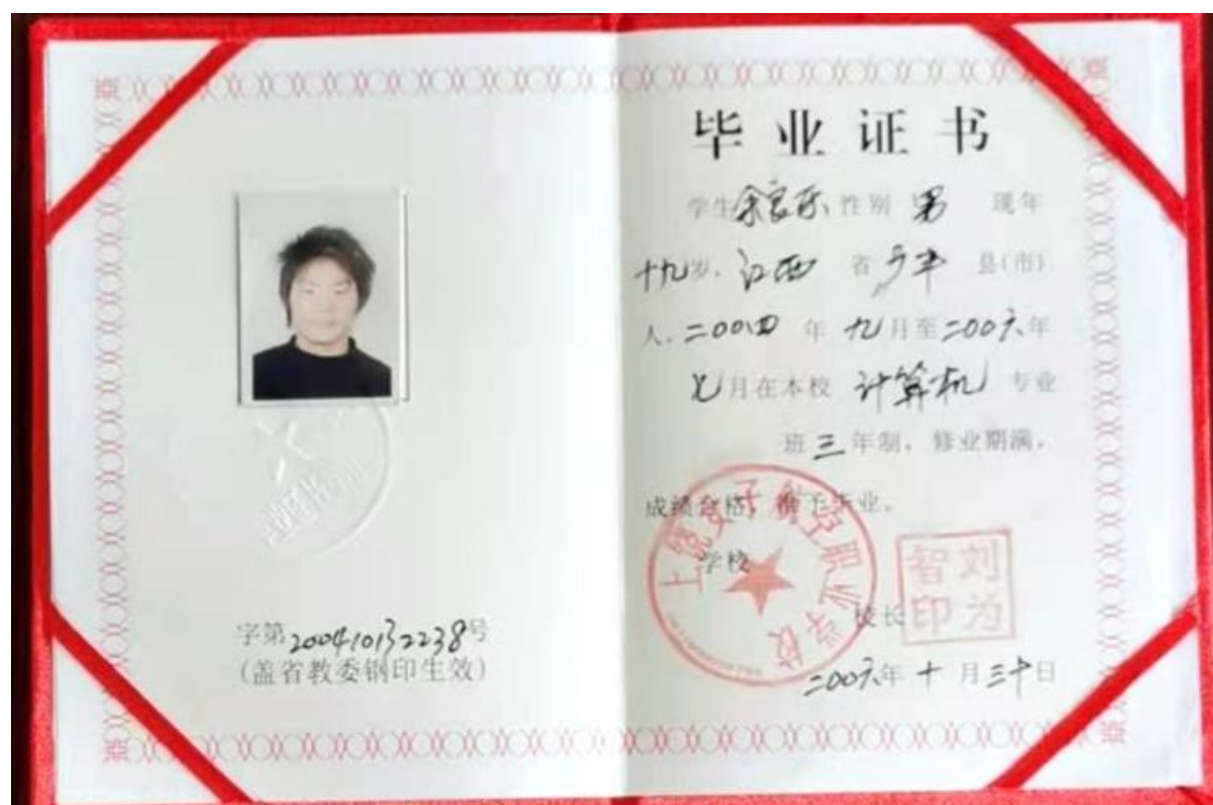 字第200410132238号
(盖省教委钢印生效)
毕业证书
学生余良乐性别 男 现年
十九岁，江西 省 广丰 县(市)
人。二00四 年 九月至二00六年
七月在本校 计算机 专业
班 三 年制，修业期满，
成绩合格，准予毕业。
学校
上饶女子航空职业学校
校长
刘为智印
二00六年 十 月 三十日